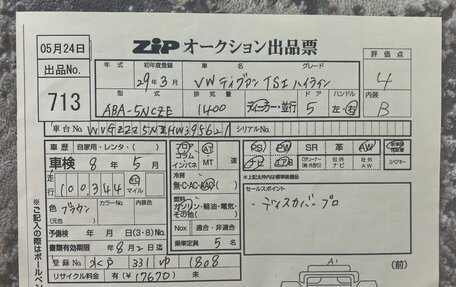 05月24日 ZIP オークション出品票
出品No. 713
年式 初年度登録 車名 グレード 評価点
29年3月 VWティグアン TSI ハイライン 4
型式 排気量 ドア ハンドル 内装
ABA-5NCZE 1400 ディーラー・並行 5 左・右 B
車台No. シリアルNo.
車歴 自家用・レンタ・( ) フロア コラム インパネ AT MT PS PW SR 革 AW
車検 8年5月
走行 100,344 km マイル 冷房 無・C・AC・AAC
色 ブラウン (元色) カラーNo. 内装色 燃料 ガソリン・軽油・電気・その他( ) セールスポイント
・ディスカバープロ
予備検有効期限 月 日 (3・8)No. Nox 適合・非適合
書類有効期限 8月 日迄 乗車定員 5名
登録No. 331 ゆ 1808 (前)
リサイクル料金 有(¥17670) 未